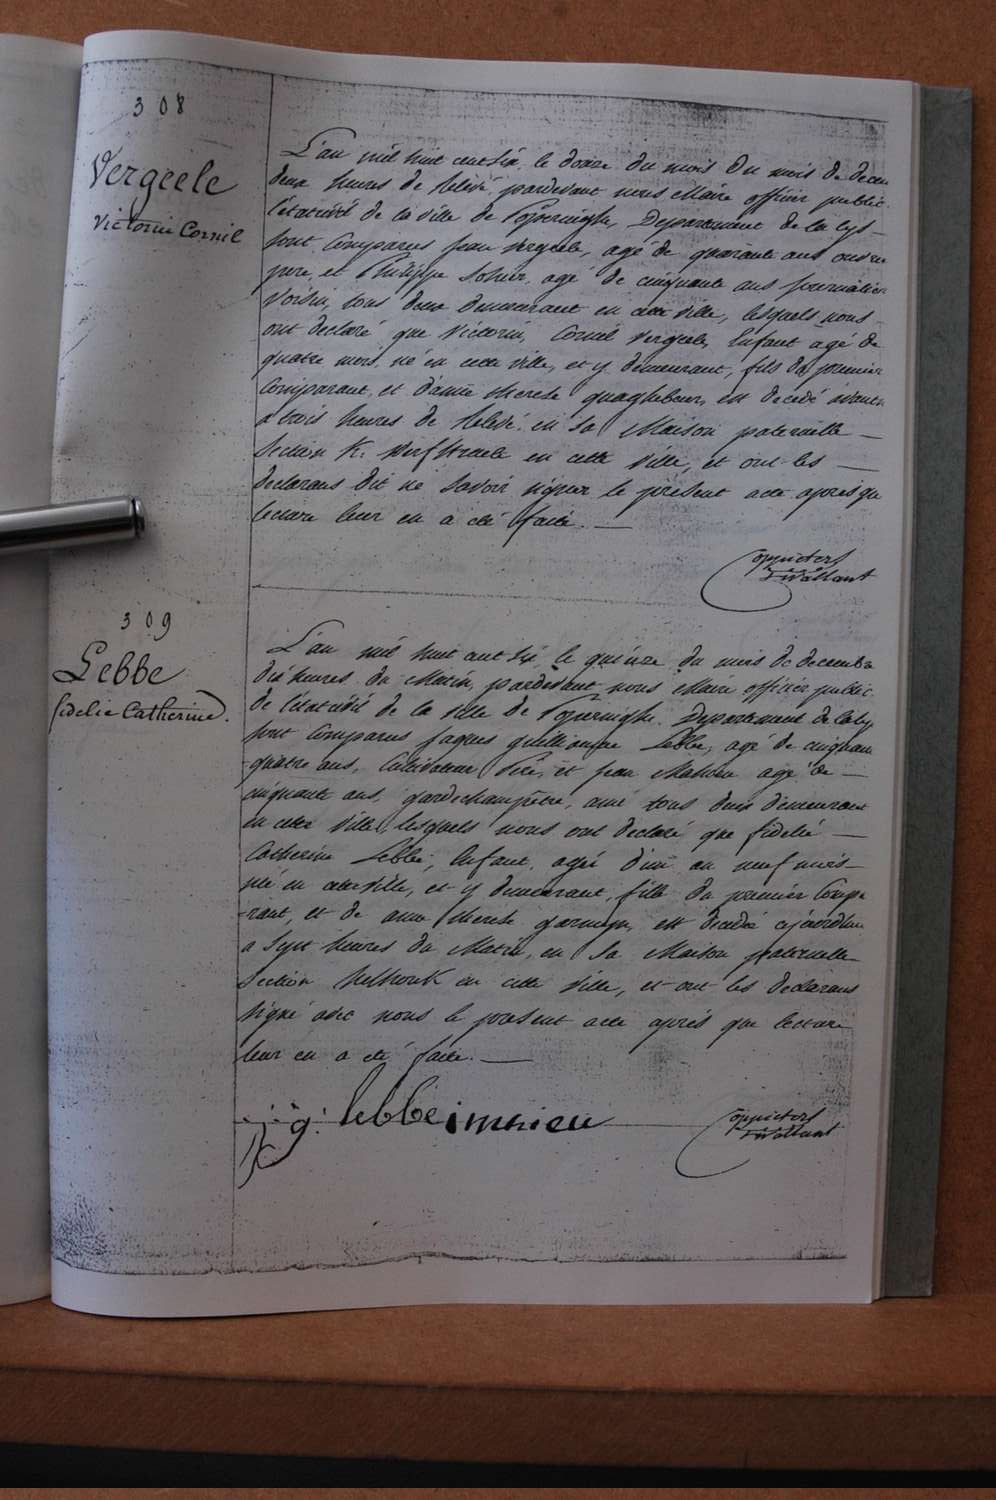 308
Vergeele
Victorin Cornil
L'an mil huit cent six le douze du mois du mois de decem
deux heures de relevé, pardevant nous Maire officier public
l'étatcivil de la ville de Poperinghe, Departement de la Lys
sont Comparus jean Vergeele, agé de quarante ans
pere, et Philippe agé de cinquante ans journalier
Voisin, tous deux demeurant en cette ville, lesquels nous
ont declaré que Victorin, Cornil Vergeele, Enfant agé de
quatre mois, né en cette ville, et y demeurant, fils du premier
Comparant, et d'anne therese quaghebeur, est decedé
a trois heures de Relevé, en sa Maison paternelle
Section K. en cette Ville, et ont les
declarans dit ne Savoir signer le present acte apres qu
lecture leur en a été faite.
309
Lebbe
fidelie Catherine.
L'an mil huit cent six, le quinze du mois de decembre
dix heures du Matin, pardevant nous Maire officier public
de l'étatcivil de la ville de Poperinghe. Departement de la Ly
sont Comparus jaques guillieaume Lebbe, agé de cinquan
quatre ans, Cultivateur Pere, et jean Mahieu agé de
cinquante ans, gardechampetre, ami tous deux demeurant
en cette Ville, lesquels nous ont declaré que fidelié
Catherine Lebbe, Enfant, agée d'un an neuf mois
née en cette ville, et y demeurant, fille du premier Compa
-rant, et de anne therese est decedée cejourdhui
a sept heures du Matin, en Sa Maison paternelle
Section Helhouk en cette Ville, et ont les declarans
Signé avec nous le present acte aprés que lecture
leur en a été faite.
j: g: lebbe imaieu